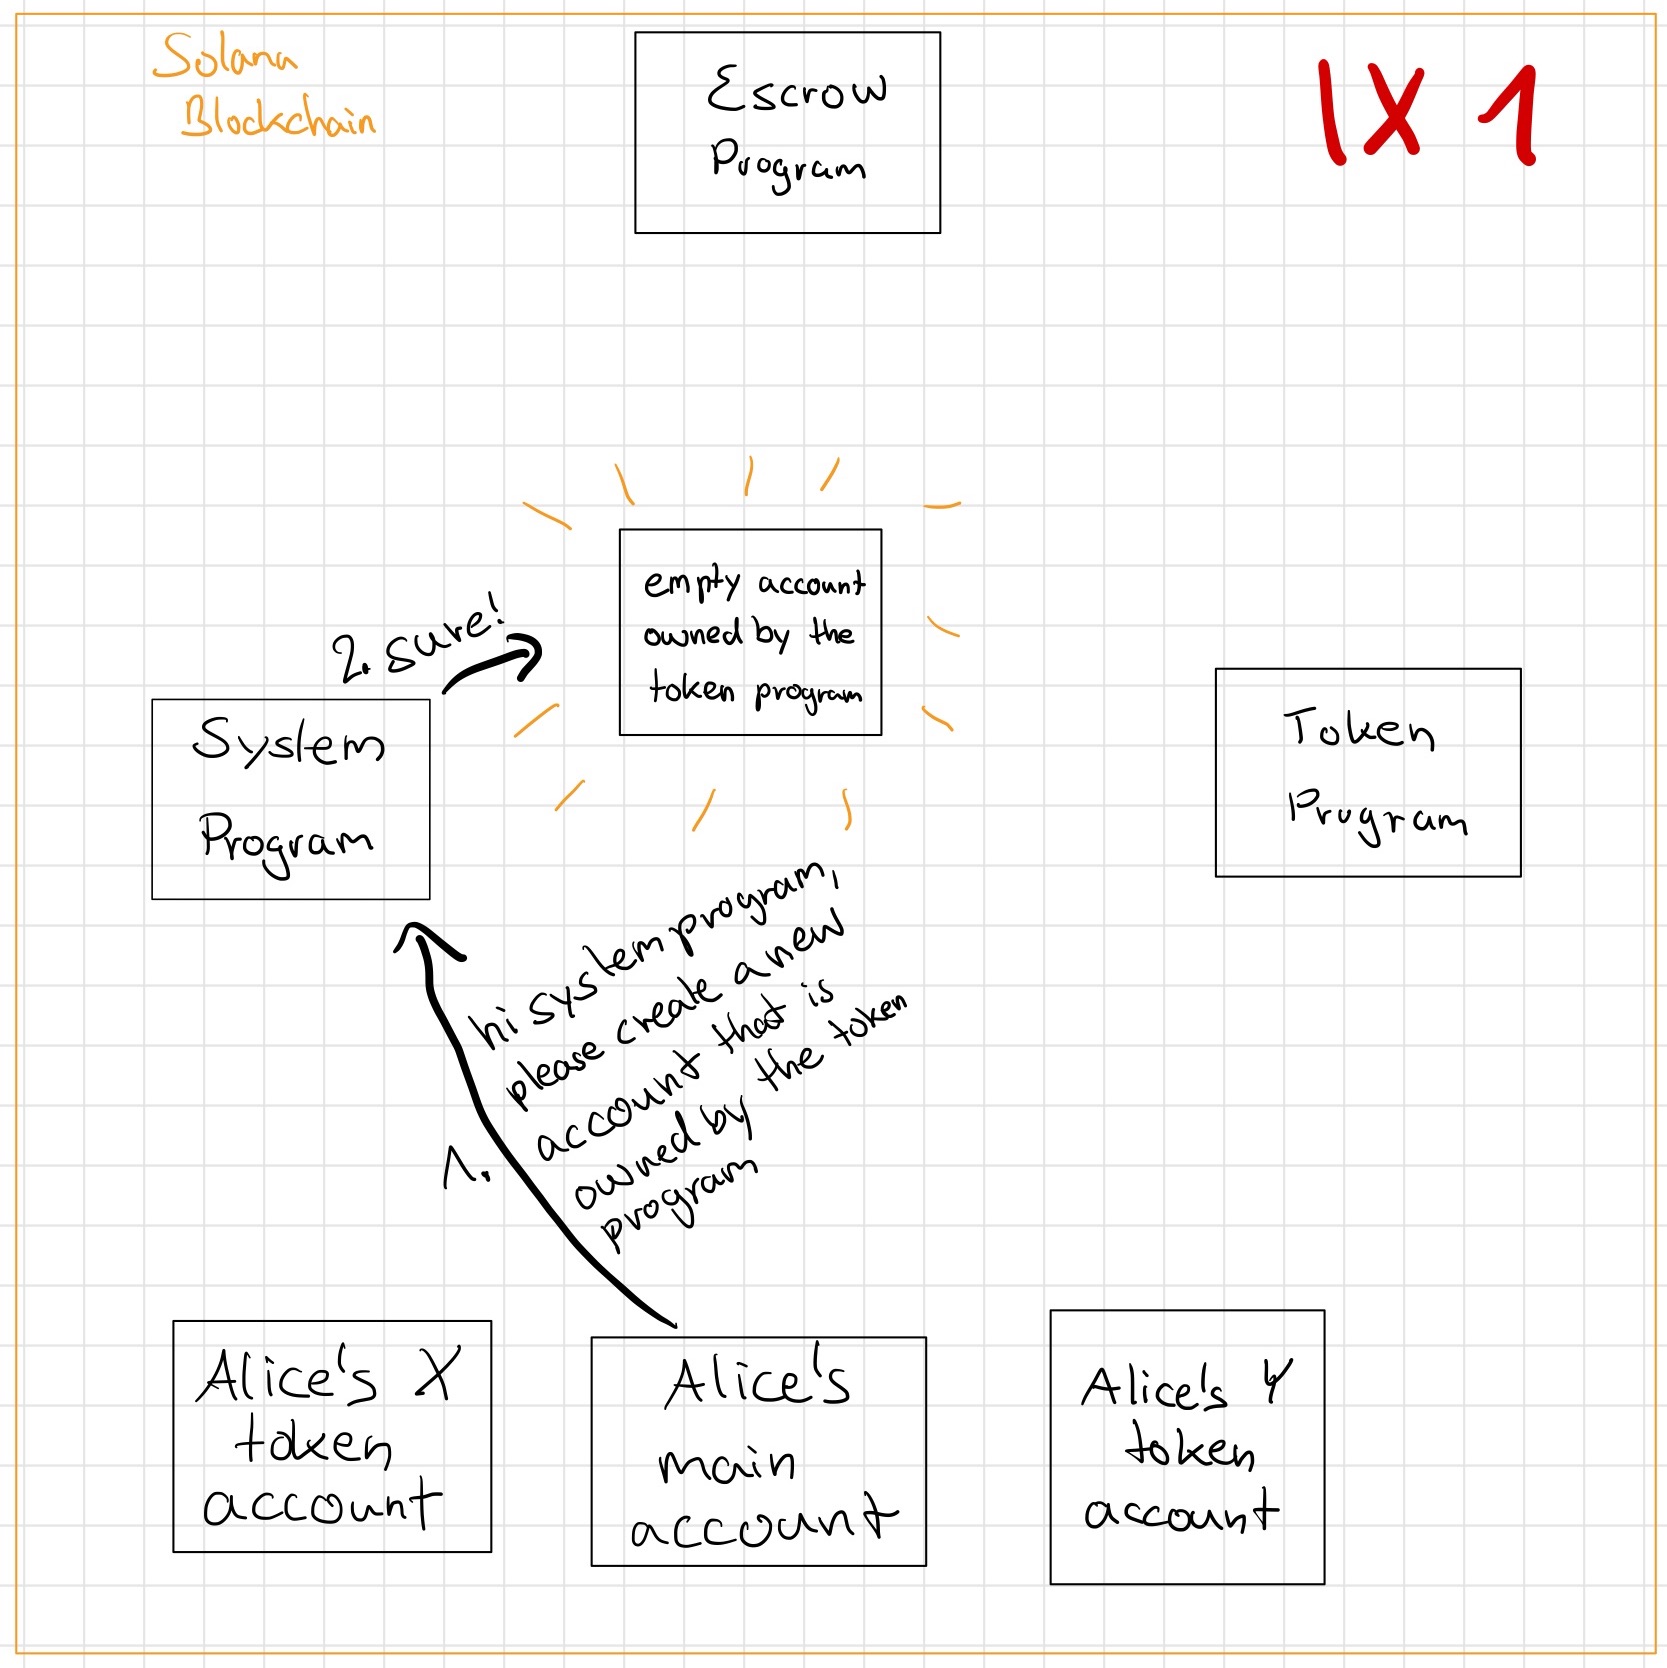 Solana
Blockchain
Escrow
Program
IX 1
empty account
owned by the
token program
2. sure!
System
Program
Token
Program
hi system program,
please create a new
account that is
owned by the token
program
1.
Alice's X
token
account
Alice's
main
account
Alice's Y
token
account